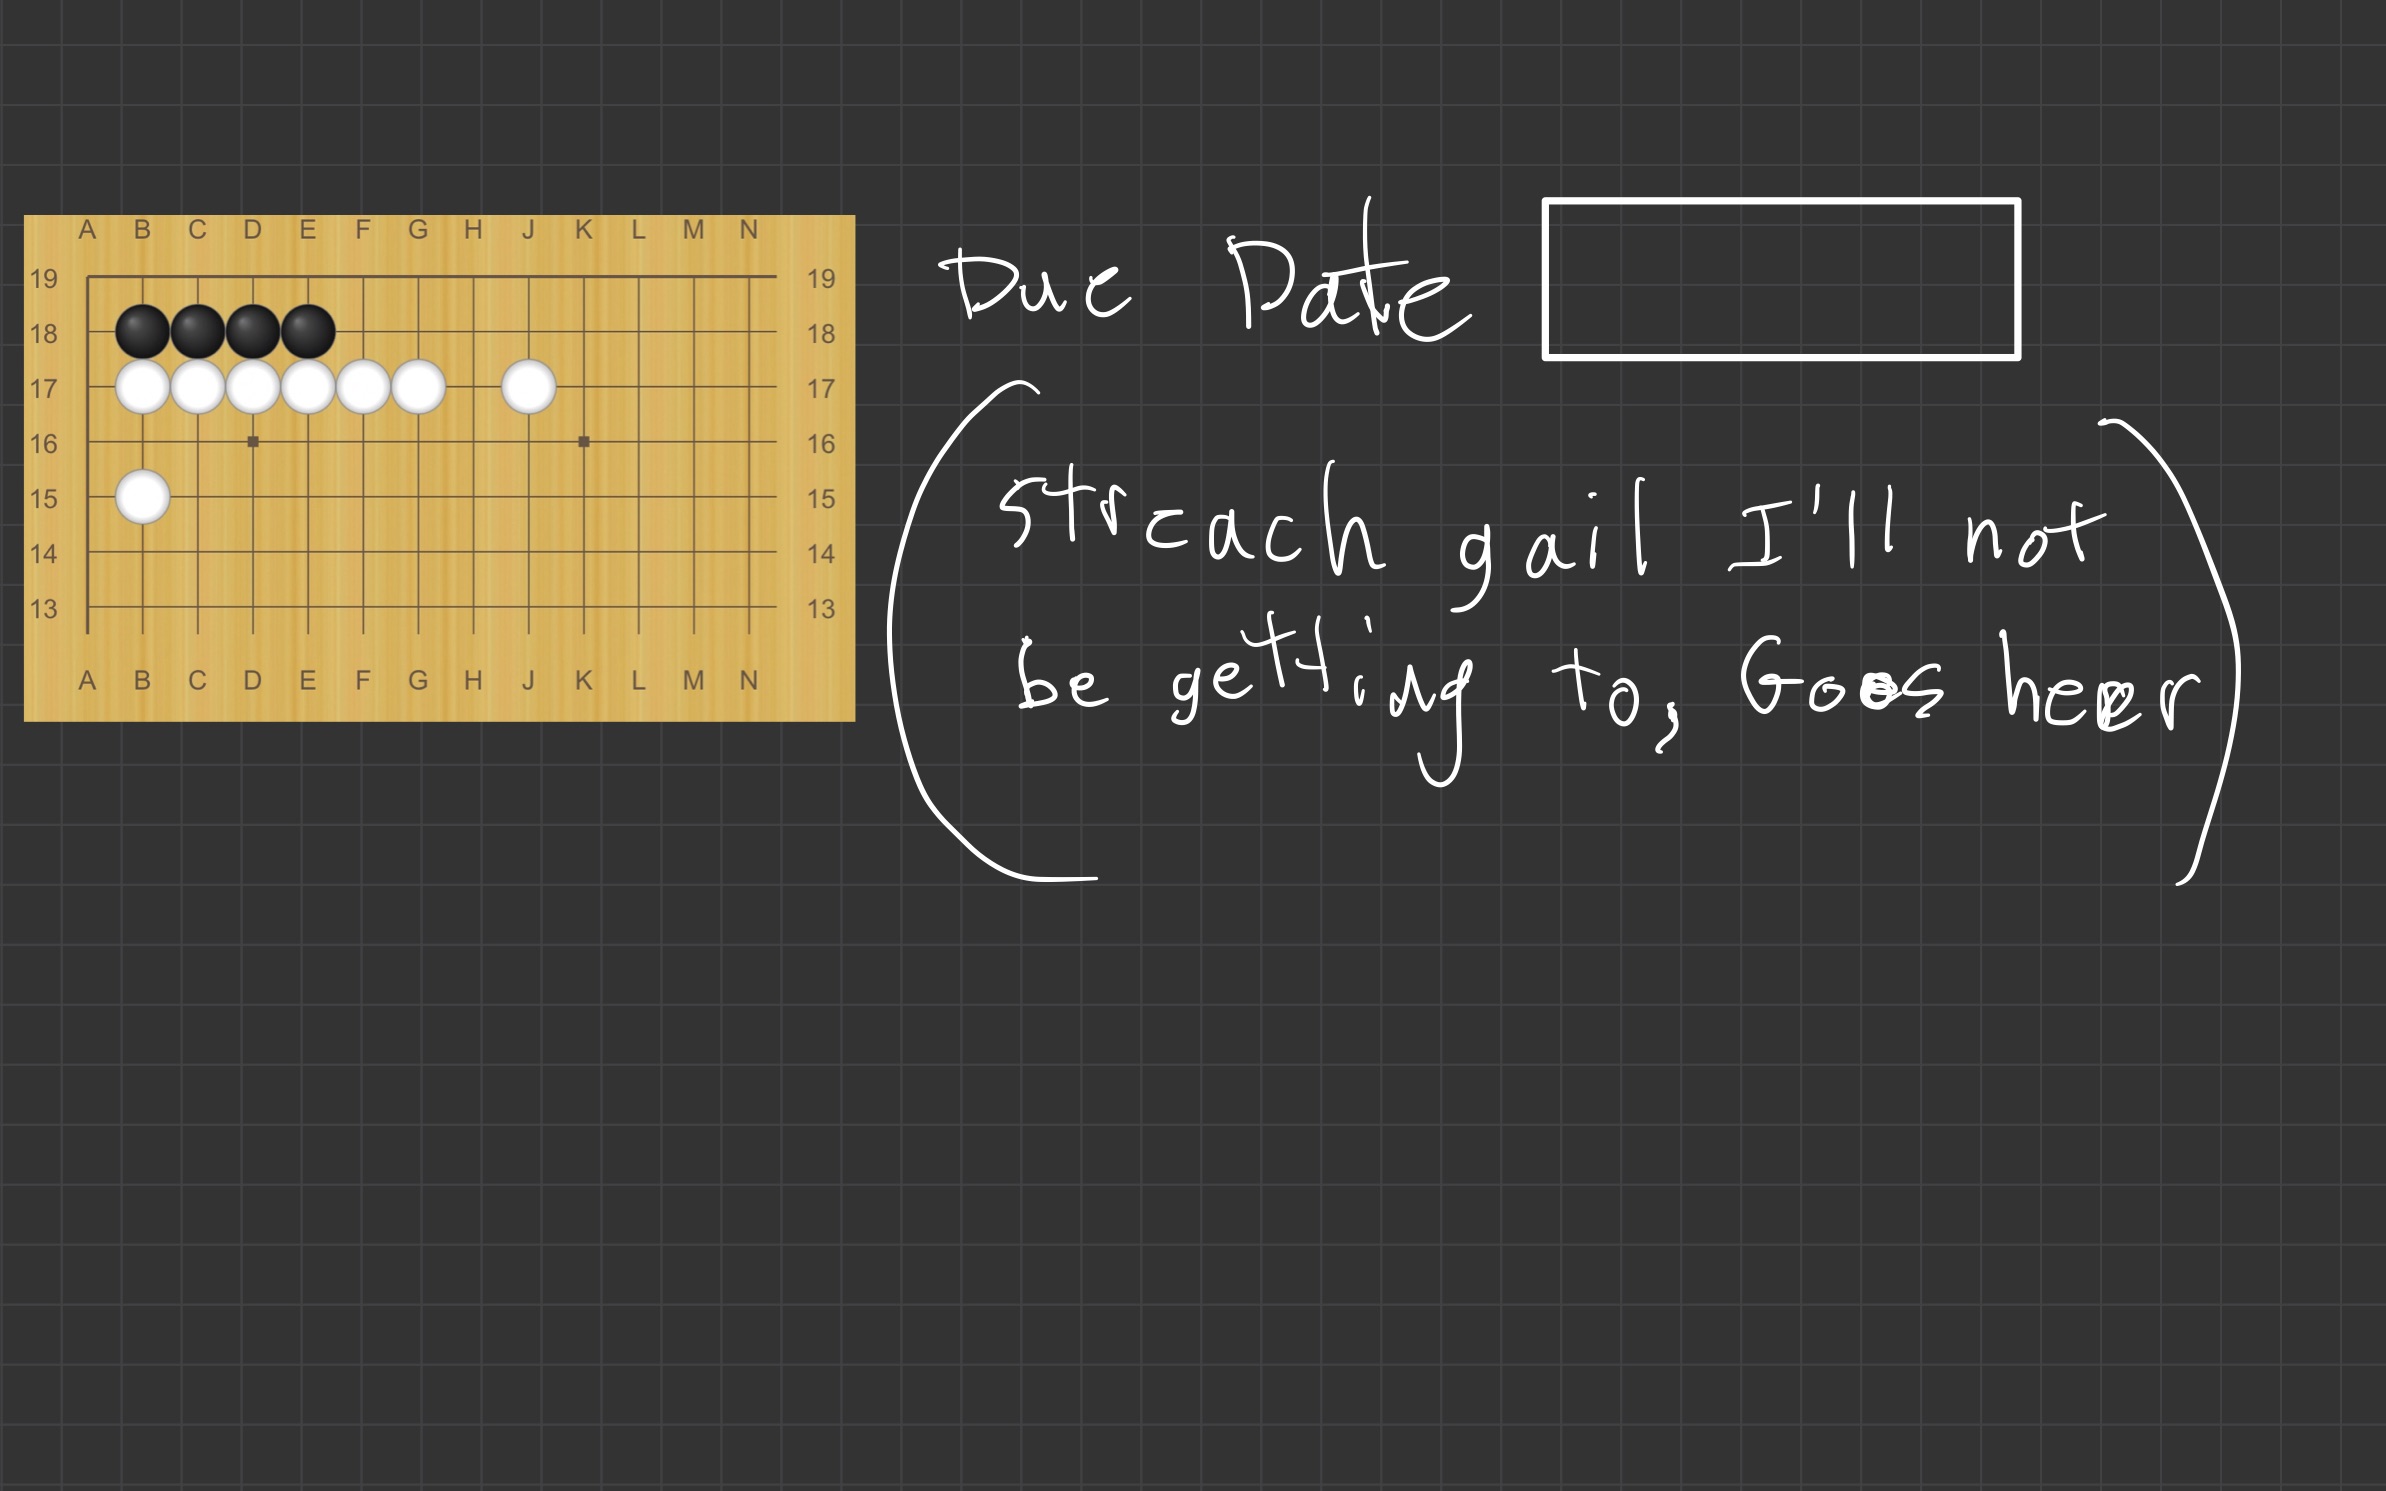 A B C D E F G H J K L M N
19 19
18 18
17 17
16 16
15 15
14 14
13 13
A B C D E F G H J K L M N
Due Date
streach gail I'll not
be getting to, Goes heer